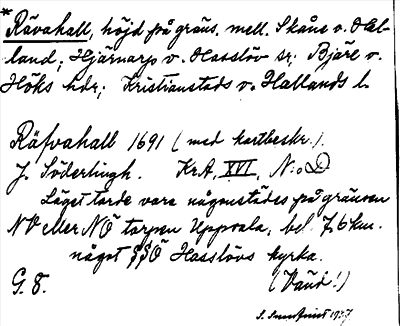 * Rävahall, höjd på gräns. mell. Skåne o. Hal-
land; Hjärnarp o. Hasslöv sr; Bjäre o.
Höks hdr; Kristianstads o. Hallands l.
Räfvahall 1691 (med kartbeskr.).
J. Söderlingh. Kr.A, XVI, N:o D
Läget torde vara någonstädes på gränsen
NV eller NÖ torpen Uppvala, bel. 7,6 km.
något SSÖ Hasslövs kyrka.
G. 8. (Vänd!)
1927